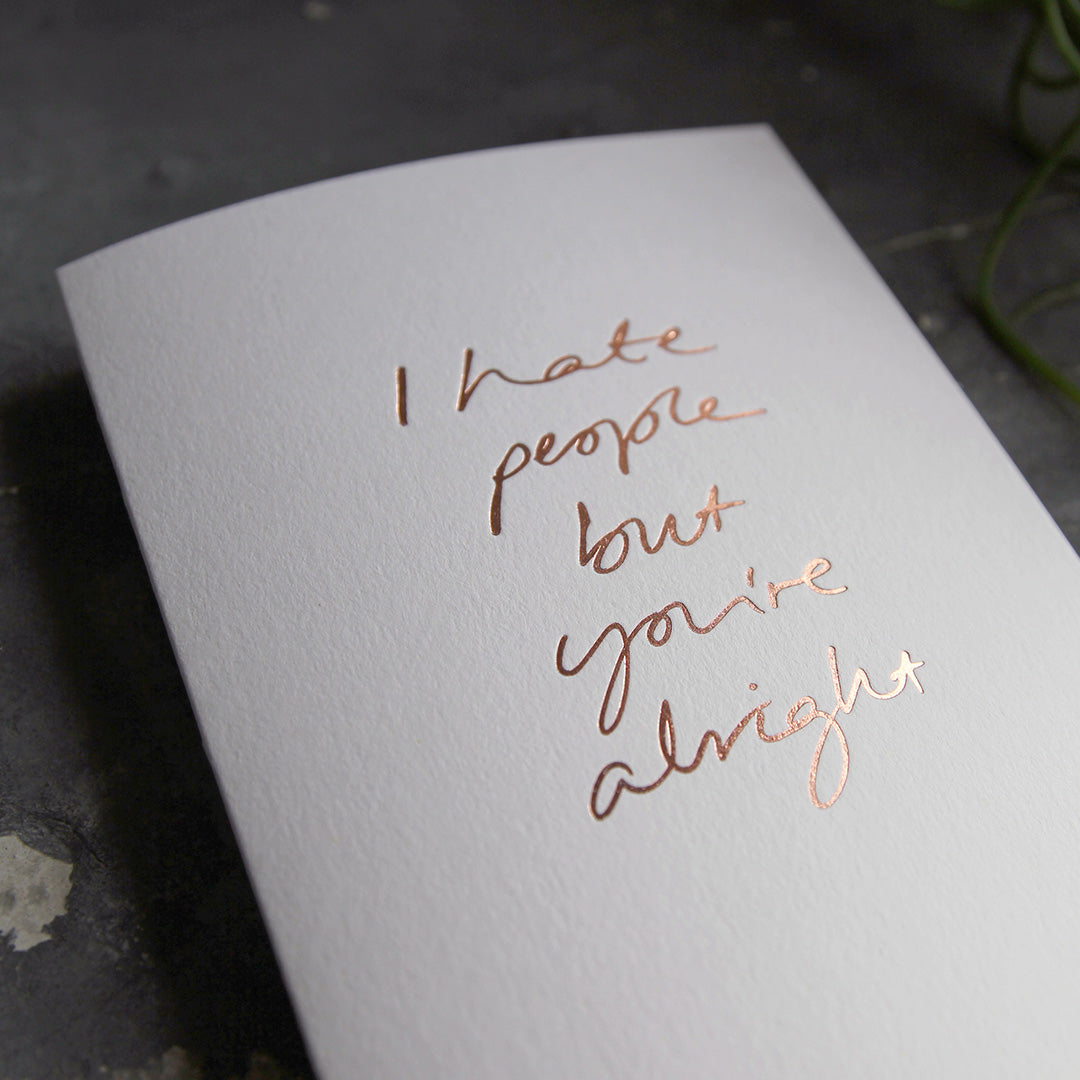 I hate
people
but
you're
alright